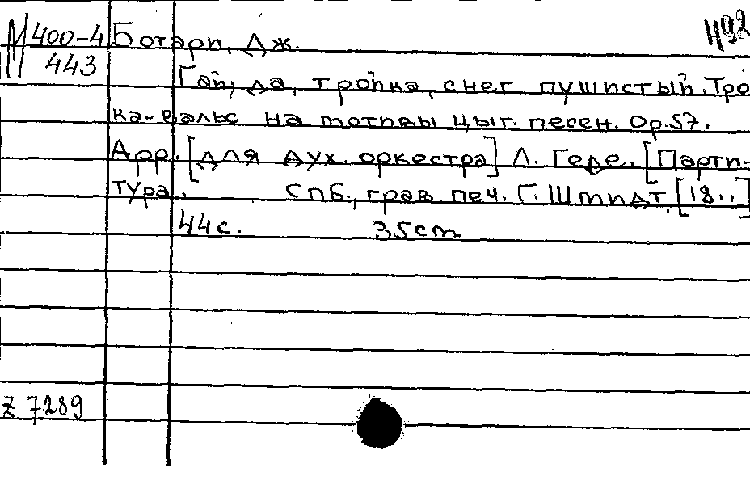 492
М 400-4 Ботари, Дж.
443
Гай, да, тройка, снег пушистый. Трой
ка-вальс на мотивы цыг. песен. Ор.57.
Арр. [для дух. оркестра] Л. Геде.. [Парти-
тура. СПб., грав. печ. Г. Шмидт, [18..]
44 с. 35 cm
Z 7289